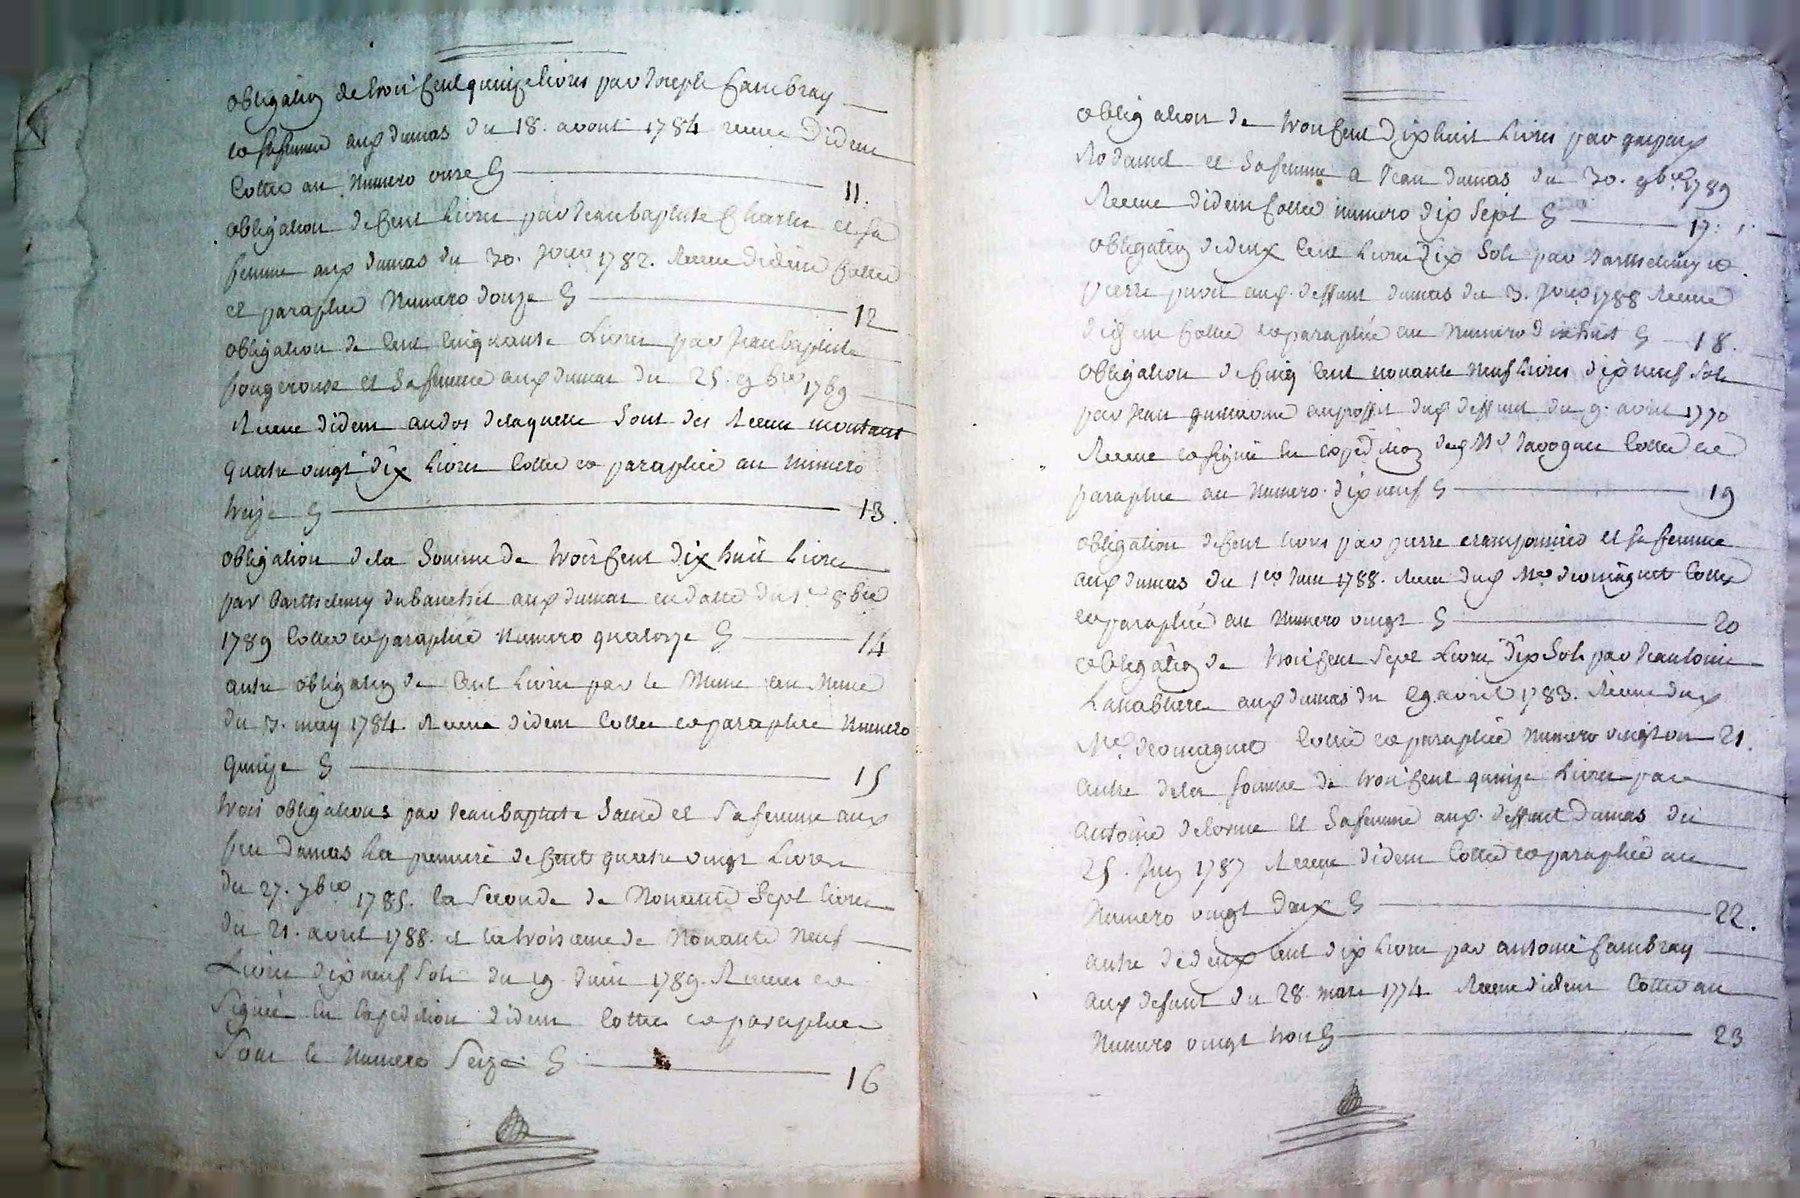 obligation de trois cent quinze livres par Joseph Cambray
et sa femme aux dumas du 18. avout 1784 reçeue didem
Cottée au Numero onze 11.
obligation de Cent Livres par Jean baptiste Charlen et sa
femme aux dumas du 30. 1782. Reçeue didem Cottée
et paraphée Numero douze 12
obligation de Cent Cinquante Livres par Jean baptiste
fougerouse et Sa femme aux dumas du 25. 9bre 1769
Reçeue didem au dos de laquelle Sont des Reçeus montant
quatre vingt dix Livres Cottée et paraphée au Numero
treize 13.
obligation de la Somme de trois Cent dix huit Livres
par Barthelemy dubanchet aux dumas en datte du 1er 8bre
1789 Cottée et paraphée Numero quatorze 14
autre obligation de Cent Livres par le Meme au Meme
du 3. may 1784. Reçeue didem Cottée et paraphée Numero
quinze 15
trois obligations par Jean baptiste et Sa femme aux
feu Dumas La premiere de Cent quatre vingt Livres
du 27. 7bre 1785. la Seconde de Nonante Sept livres
du 21. avril 1788. et la troisieme de Nonante Neuf
Livres dix neuf Sols du 19 Juin 1789. Reçeues et
Signée En Expedition didem Cottées et paraphées
Sous le Numero Seize 16
obligation de trois Cent dix huit Livres par
et Sa femme a Jean dumas du 30. 9bre 1789
Reçeue didem Cottée numero dix Sept 17.
obligation de deux Cent Livres dix Sols par Barthelemy et
pierre aux deffunt dumas du 3. 1788 Reçeue
didem Cottée et paraphée au Numero dix huit 18.
obligation de Cinq Cent nonante Neuf Livres dix neuf Sols
par Jean guillaume au proffit dud deffunt du 9. avril 1770
Reçeue et signée En Expedition dud Me Cottée et
paraphée au Numero dix neuf 19
obligation de Cent livres par pierre et sa femme
aux dumas du 1er Juin 1788. Reçeue dud Me Cottée
et paraphée au Numero vingt 20
obligation de trois Cent Sept Livres dix Sols par
aux dumas du 29. avril 1783. Reçeue dud
Me Cottée et paraphée Numero vingt un 21.
autre de la Somme de trois Cent quinze Livres par
Antoine delorme et Sa femme aux deffunt Dumas du
25. Juin 1787 Reçeue didem Cottée et paraphée au
Numero vingt deux 22.
autre de deux Cent dix Livres par antoine Cambray
aux defunt du 28. mars 1774. Reçeue didem Cottée au
Numero vingt trois 23